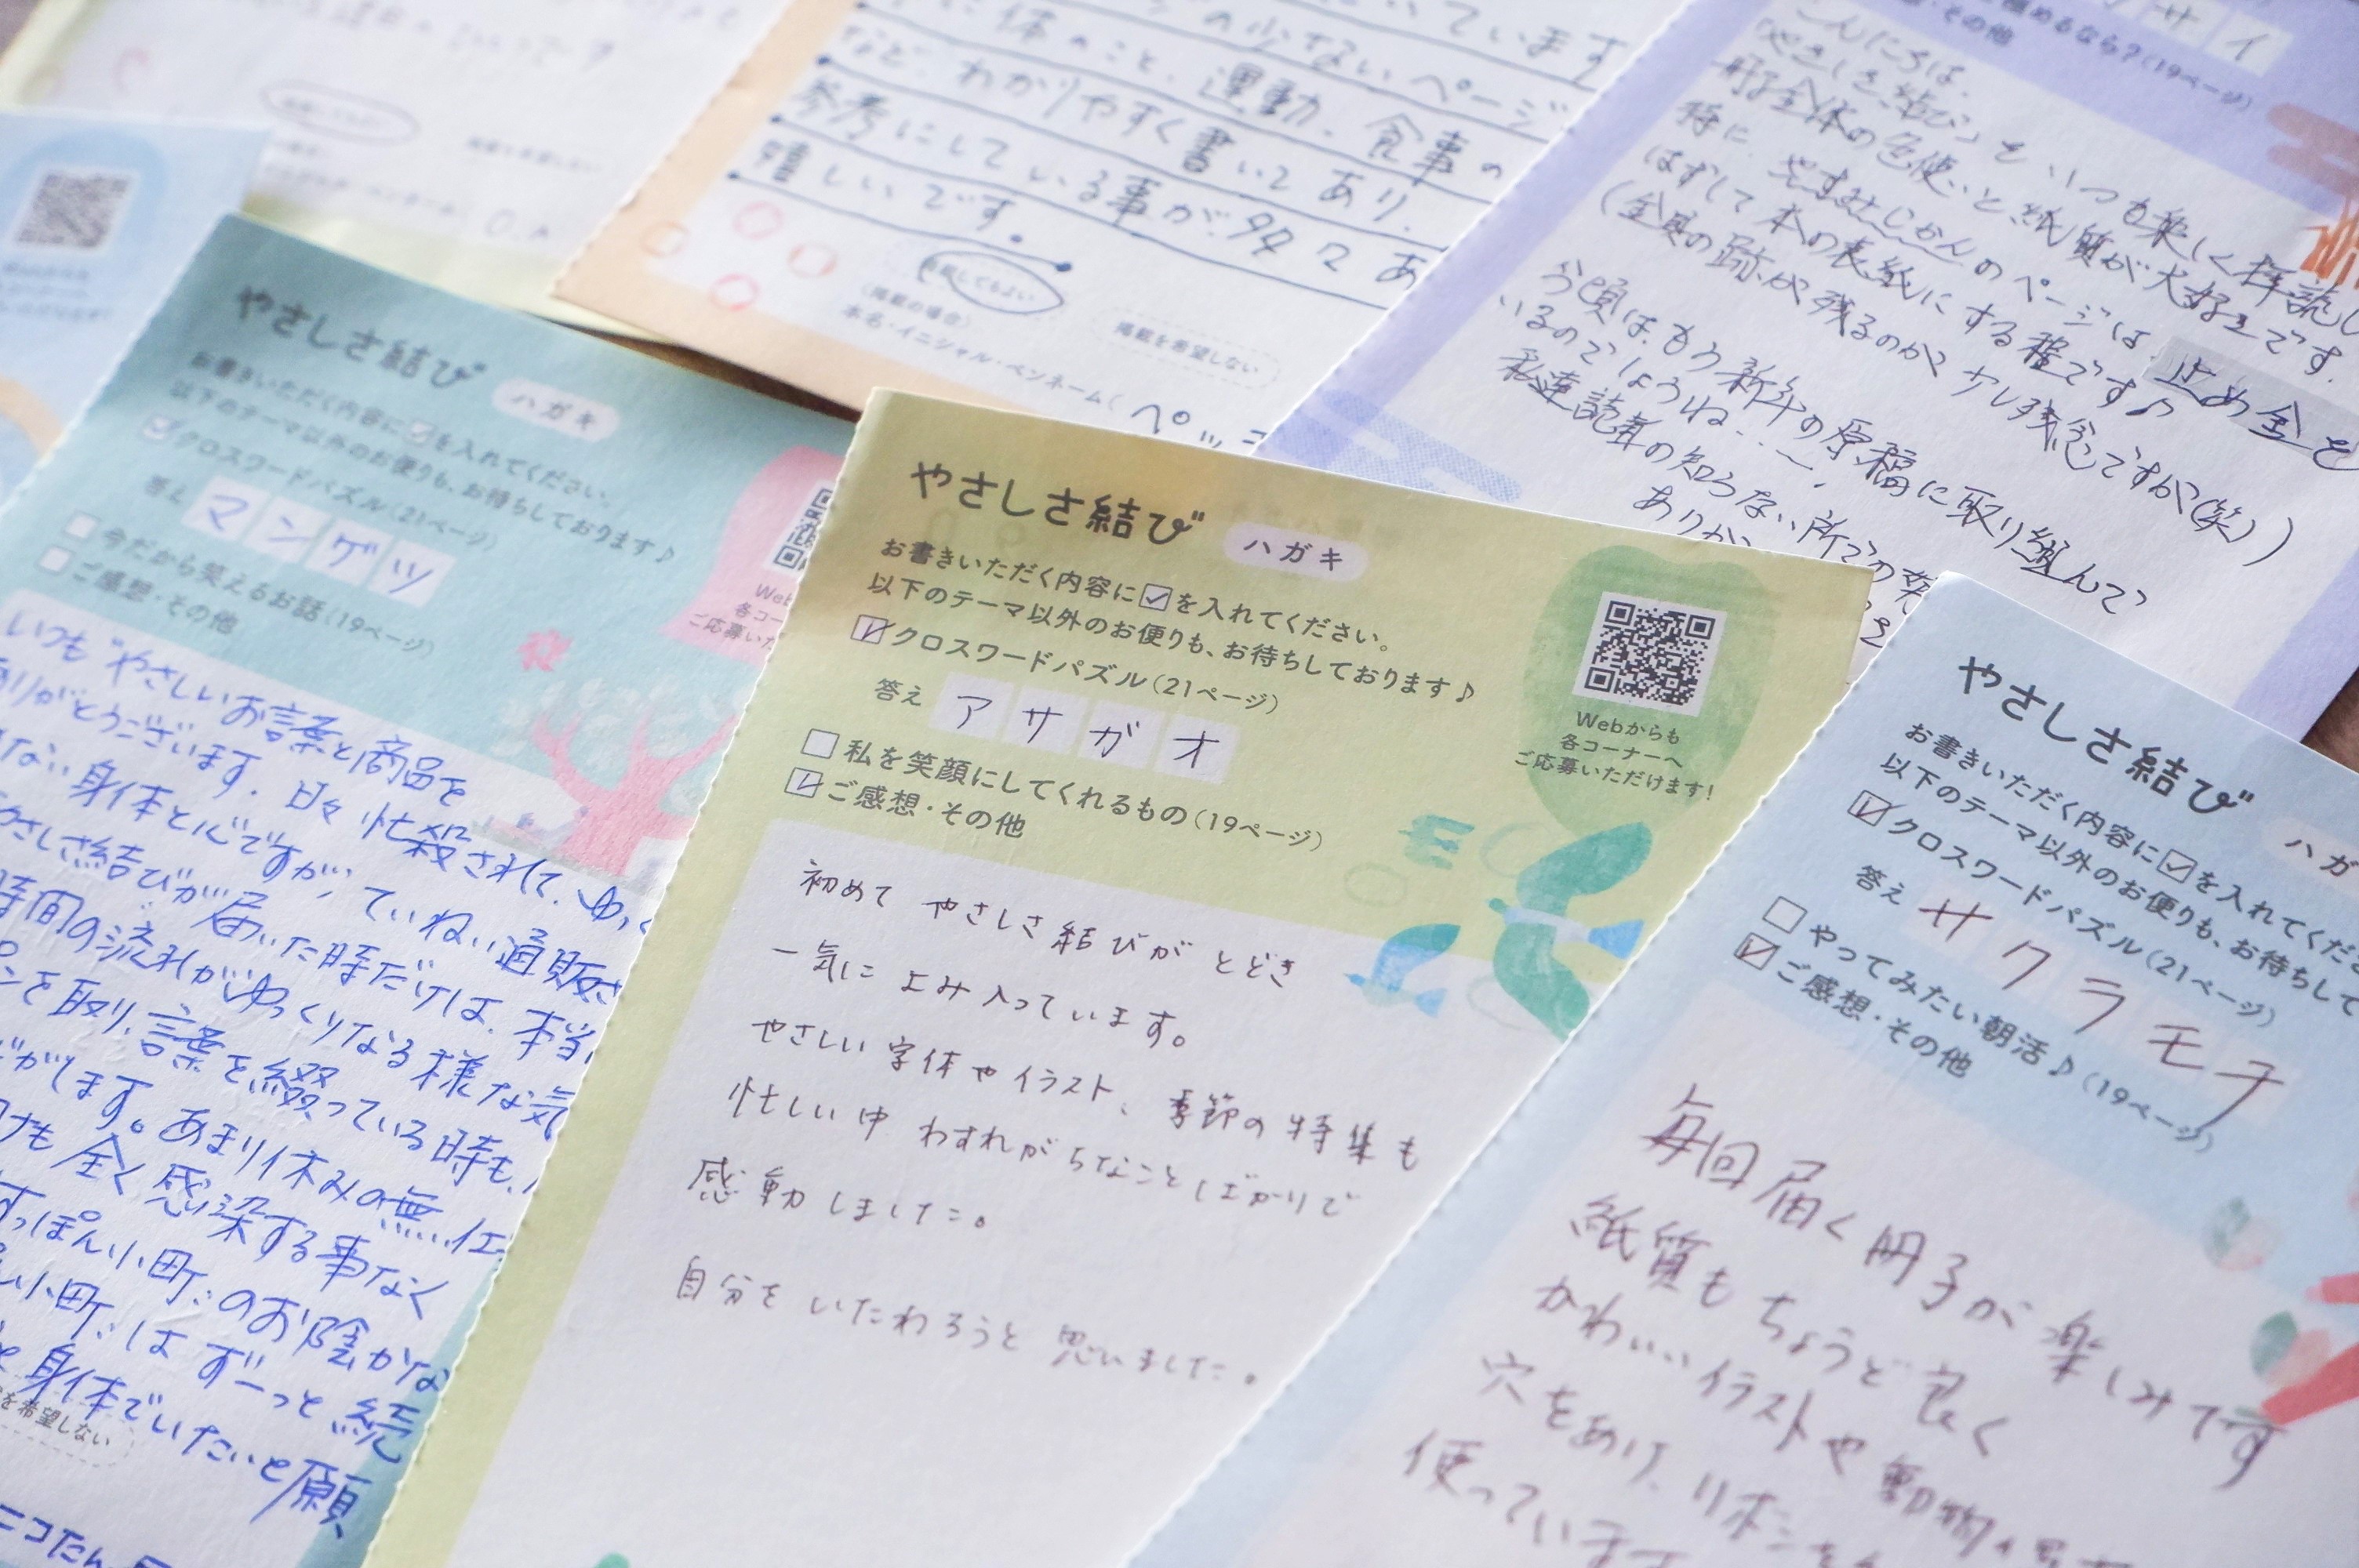 ています
体のこと、運動、食事の
など、わかりやすく書いてあり、
参考にしている事が多々あ
嬉しいです。
掲載してもよい
掲載を希望しない
(掲載の場合)
本名・イニシャル・ペンネーム(
サイ
(19ページ)
・その他
こんにちは。
「やさしさ結び」をいつも楽しく拝読し
冊子全体の色使いと、紙質が大好きです。
特に、やすまじかんのページは、止め金を
はずして本の表紙にする程です♪
(金具の跡が残るのが少し残念ですが(笑))
今頃は、もう新年の原稿に取り組んで
いるのでしょうね…
私達読者の知らない所での
やさしさ結び ハガキ
お書きいただく内容に☑を入れてください。
以下のテーマ以外のお便りも、お待ちしております♪
☑クロスワードパズル(21ページ)
答え マンゲツ
□今だから笑えるお話(19ページ)
□ご感想・その他
いつも やさしいお言葉と商品を
ありがとうございます。日々忙殺されて、ゆっく
ない身体と心ですが、ていねい通販さ
やさしさ結びが届いた時だけは、本当
時間の流れがゆっくりなる様な気
ンを取り、言葉を綴っている時も、
がします。あまり休みの無い仕
けも全く感染する事なく
すっぽん小町"のお陰かな
小町"はずーっと続
身体でいたいと願
を希望しない
やさしさ結び ハガキ
お書きいただく内容に☑を入れてください。
以下のテーマ以外のお便りも、お待ちしております♪
☑クロスワードパズル(21ページ)
答え アサガオ
□私を笑顔にしてくれるもの(19ページ)
☑ご感想・その他
Webからも
各コーナーへ
ご応募いただけます!
初めて やさしさ結びが とどき
一気に よみ入っています。
やさしい字体やイラスト、季節の特集も
忙しい中 わすれがちなことばかりで
感動しました。
自分を いたわろうと 思いました。
やさしさ結び ハガ
お書きいただく内容に☑を入れてくださ
以下のテーマ以外のお便りも、お待ちして
☑クロスワードパズル(21ページ)
答え サクラモチ
□やってみたい朝活♪(19ページ)
☑ご感想・その他
毎回届く冊子が楽しみです
紙質もちょうど良く
かわいいイラストや動物
穴をあけ、リボンを
使っています